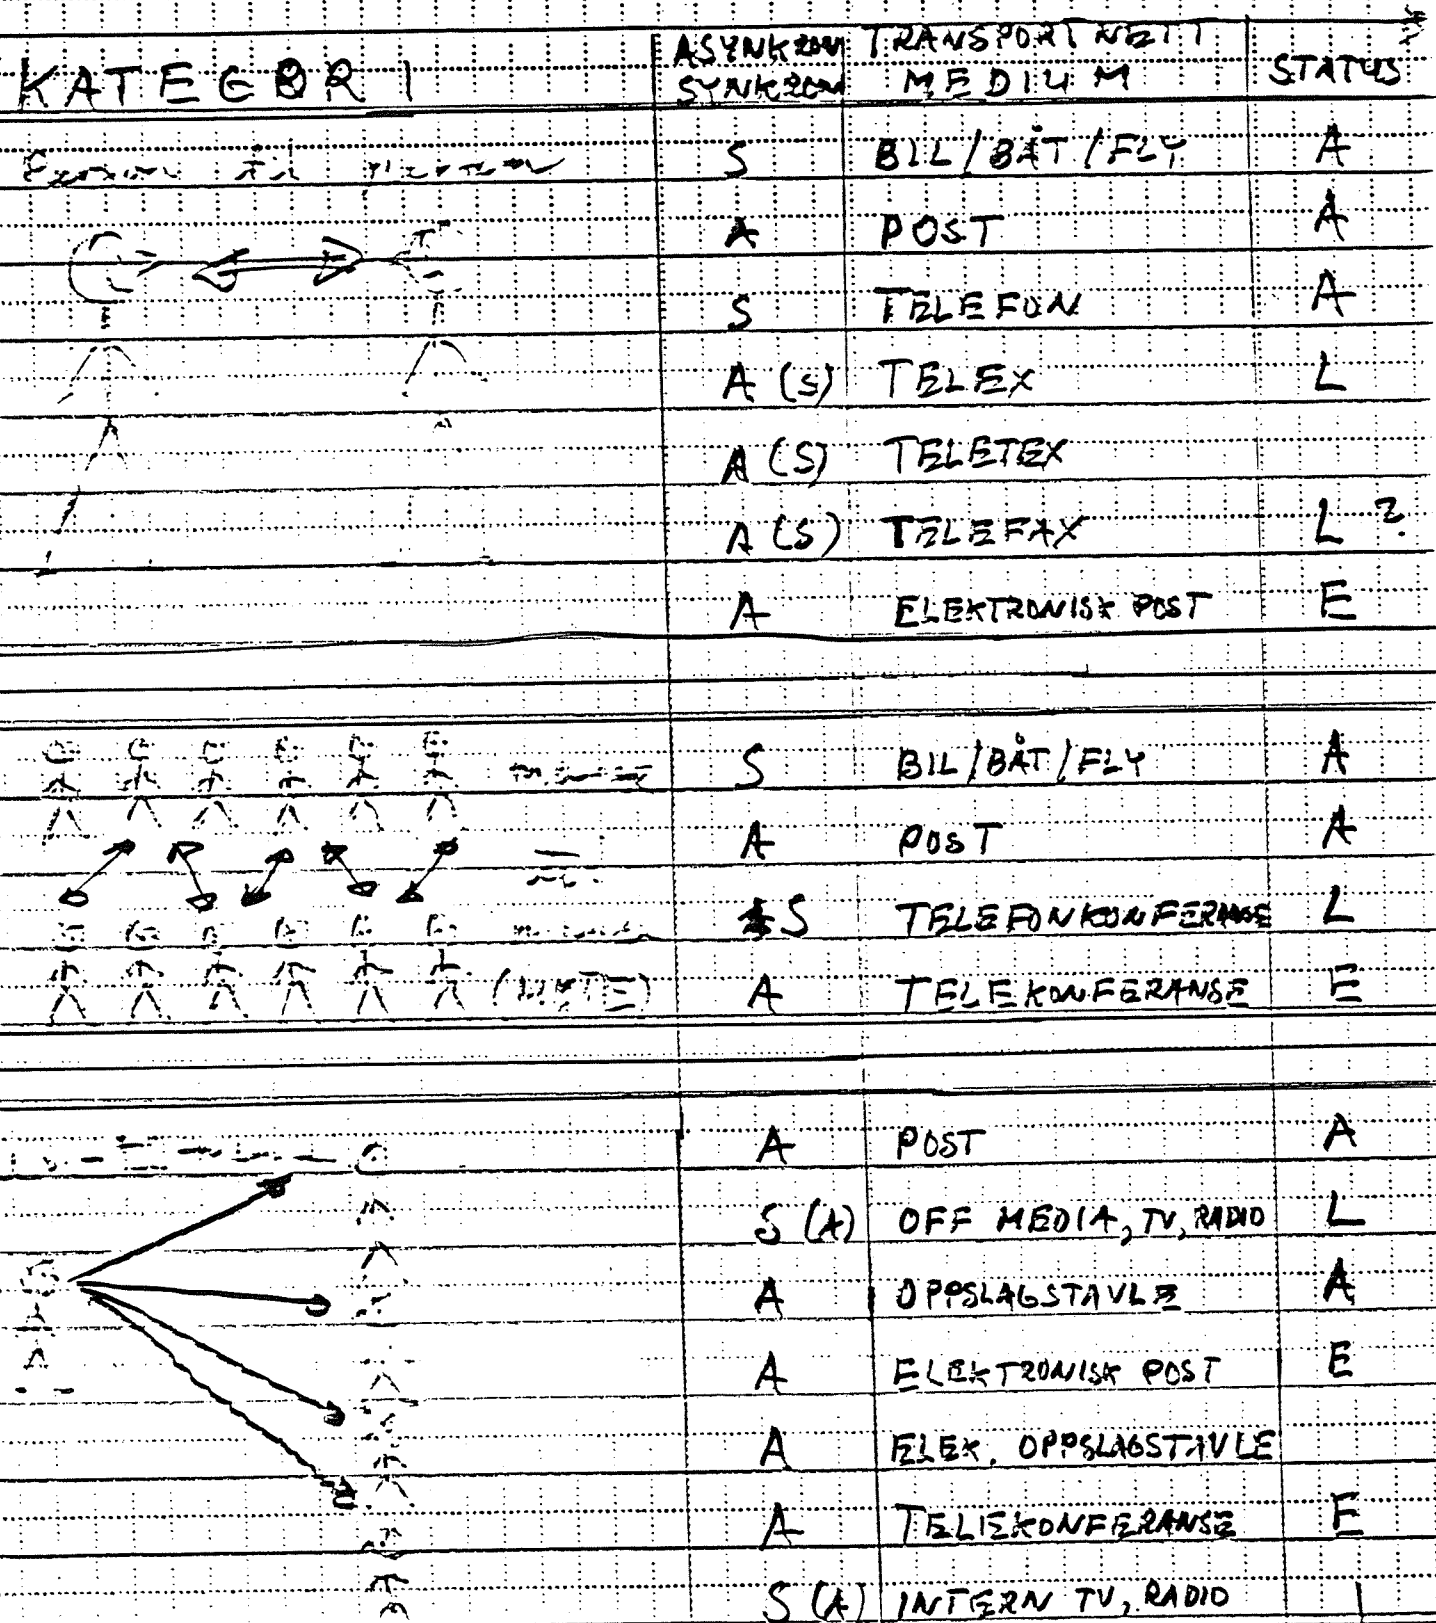 KATEGORI ASYNKRON SYNKRON TRANSPORTNETT MEDIUM STATUS
til S BIL/BÅT/FLY A
A POST A
S TELEFON A
A (S) TELEX L
A (S) TELETEX
A (S) TELEFAX L ?
A ELEKTRONISK POST E
S BIL/BÅT/FLY A
A POST A
S TELEFONKONFERANSE L
A TELEKONFERANSE E
A POST A
S (A) OFF MEDIA, TV, RADIO L
A OPPSLAGSTAVLE A
A ELEKTRONISK POST E
A ELEK. OPPSLAGSTAVLE
A TELEKONFERANSE E
S (A) INTERN TV, RADIO